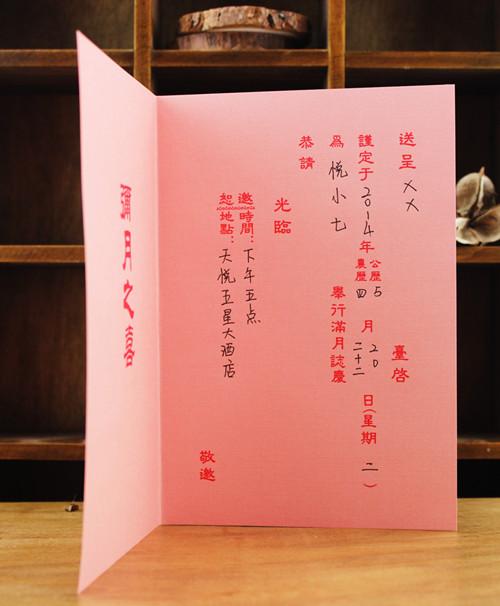 送呈 XX 臺啓
謹定于2014年 公歷5 農歷四 月 20 二十二 日(星期 二 )
爲 悦小七 舉行滿月誌慶
恭請
光臨
邀時間:下午五点
恕地點:天悦五星大酒店
敬邀
彌月之喜